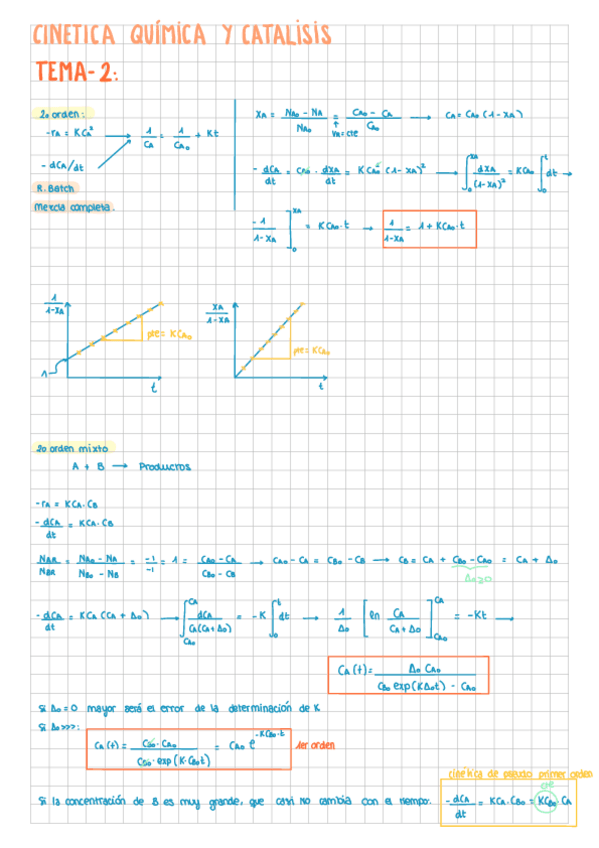 CINETICA QUÍMICA Y CATALISIS
TEMA-2:
2o orden:
-rA = KCA² → 1/CA = 1/CAo + Kt
- dCA/dt
R. Batch
Mezcla completa.
XA = (NAo - NA)/NAo = (CAo - CA)/CAo → CA = CAo (1-XA)
↑ VR=cte
- dCA/dt = CAo · dXA/dt = KCAo² (1-XA)² → ∫₀^XA dXA/(1-XA)² = KCAo ∫₀^t dt →
-1/(1-XA) ]₀^XA = KCAo·t → 1/(1-XA) = 1 + KCAo·t
1/(1-XA)
pte = KCAo
1
t
XA/(1-XA)
pte = KCAo
t
2o orden mixto
A + B → Productos
-rA = KCA·CB
-dCA/dt = KCA·CB
NAR/NBR = (NAo - NA)/(NBo - NB) = -1/-1 = 1 = (CAo - CA)/(CBo - CB) → CAo - CA = CBo - CB → CB = CA + CBo - CAo = CA + Δo
-dCA/dt = KCA (CA + Δo) → ∫CAo^CA dCA/(CA(CA+Δo)) = -K ∫₀^t dt → 1/Δo [ ln CA/(CA + Δo) ]CAo^CA = -Kt →
CA(t) = Δo CAo / (CBo exp(KΔot) - CAo)
Si Δo=0 mayor será el error de la determinación de K
Si Δo>>>:
CA(t) = CBo·CAo / (CBo·exp(K·CBot)) = CAo e^(-KCBo·t) 1er orden
cinética de pseudo primer orden
Si la concentración de B es muy grande, que casi no cambia con el tiempo. -dCA/dt = KCA·CBo = KCBo·CA